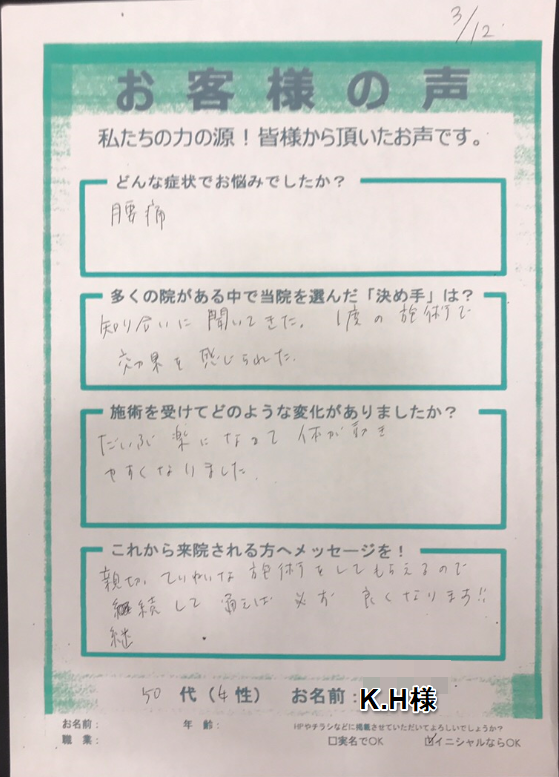 3/12
お客様の声
私たちの力の源！皆様から頂いたお声です。
どんな症状でお悩みでしたか？
腰痛
多くの院がある中で当院を選んだ「決め手」は？
知り合いに聞いてきた。1度の施術で
効果を感じられた。
施術を受けてどのような変化がありましたか？
だいぶ楽になって体が動き
やすくなりました。
これから来院される方へメッセージを！
親切、ていねいな施術をしてもらえるので
継続して通えば必ず良くなります!!
継
50 代（女性） お名前：K.H様
お名前： 年齢： HPやチラシなどに掲載させていただいてよろしいでしょうか？
職業： □実名でOK ☑イニシャルならOK